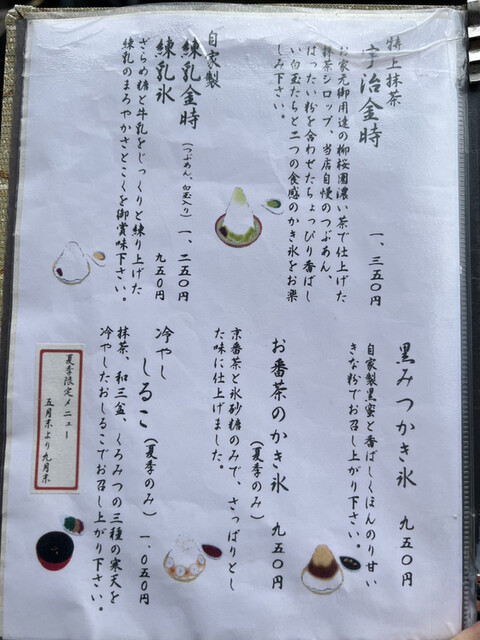 特上抹茶
宇治金時
一、三五〇円
お家元御用達の柳桜園濃い茶で仕上げた
抹茶シロップ、当店自慢のつぶあん、
はったい粉を合わせたちょっぴり香ばし
い白玉たちと二つの食感のかき氷をお楽
しみ下さい。
自家製
練乳金時(つぶあん、白玉入り)一、二五〇円
練乳氷 九五〇円
ざらめ糖と牛乳をじっくりと練り上げた
練乳のまろやかさとこくを御賞味下さい。
黒みつかき氷 九五〇円
自家製黒蜜と香ばしくほんのり甘い
きな粉でお召し上がり下さい。
お番茶のかき氷
(夏季のみ) 九五〇円
京番茶と氷砂糖のみで、さっぱりとし
た味に仕上げました。
冷やし
しるこ(夏季のみ)一、〇五〇円
抹茶、和三盆、くろみつの三種の寒天を
冷やしたおしるこでお召し上がり下さい。
夏季限定メニュー
五月末より九月末